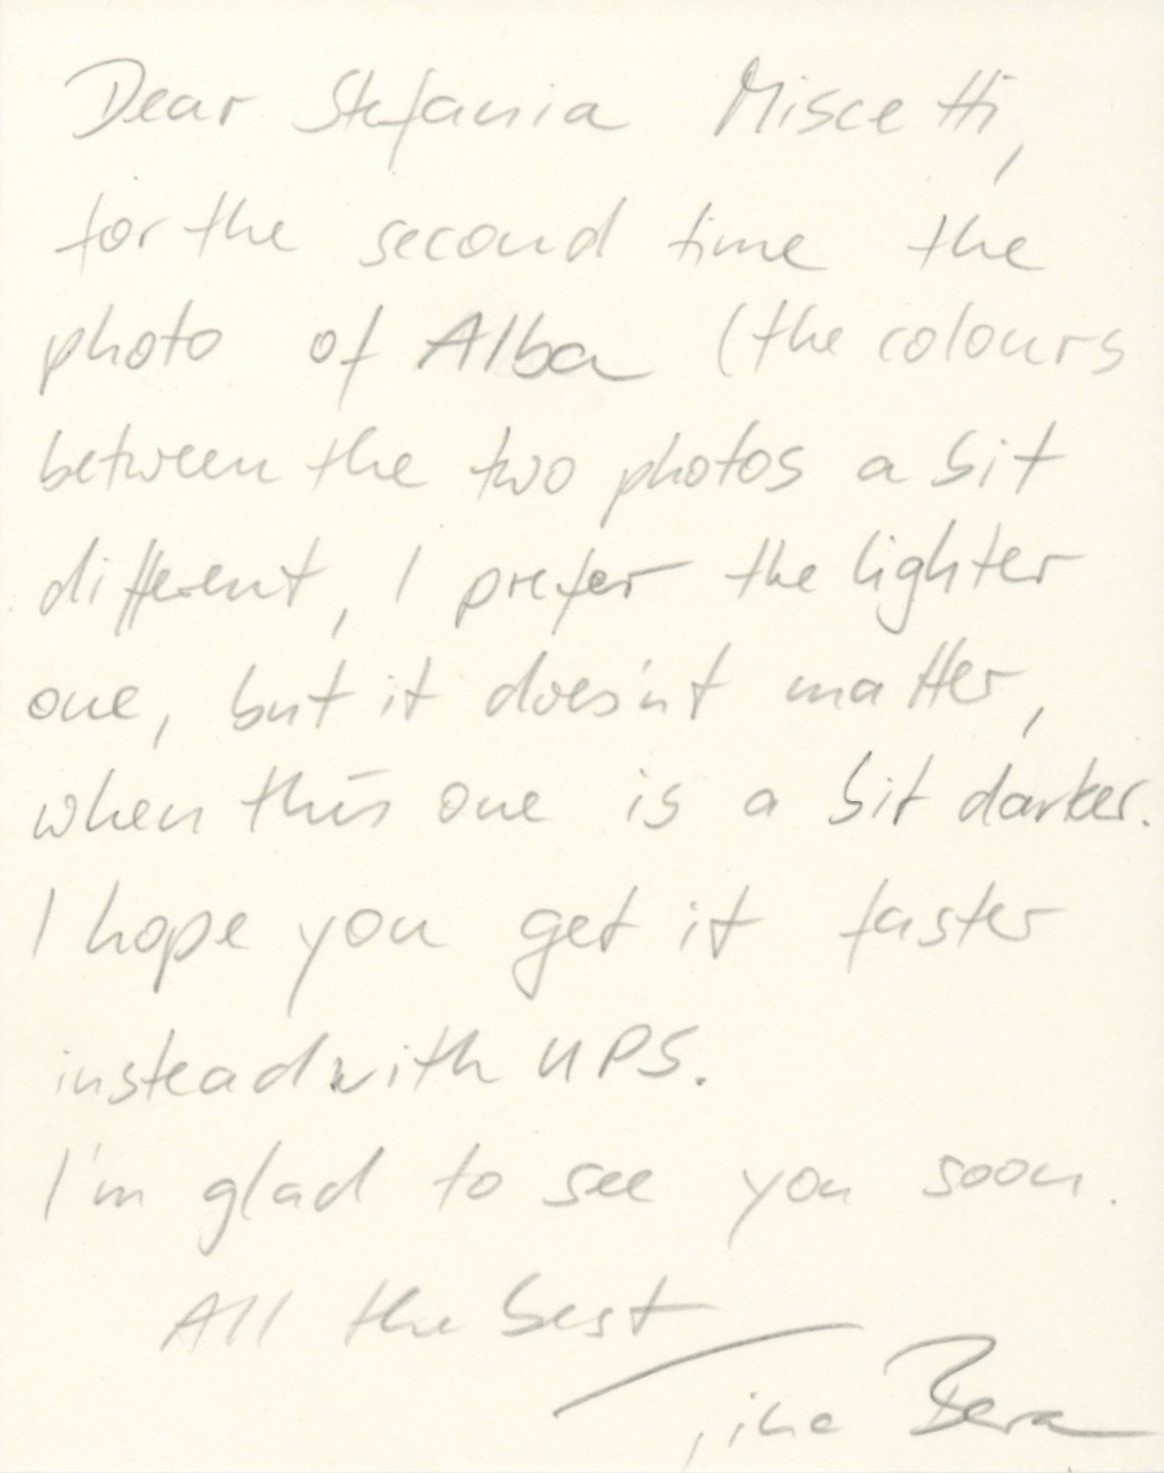 Dear Stefania Miscetti,
for the second time the
photo of Alba (the colours
between the two photos a bit
different, I prefer the lighter
one, but it does'nt matter,
when this one is a bit darker.
I hope you get it faster
instead with UPS.
I'm glad to see you soon.
All the best
Tina Bara